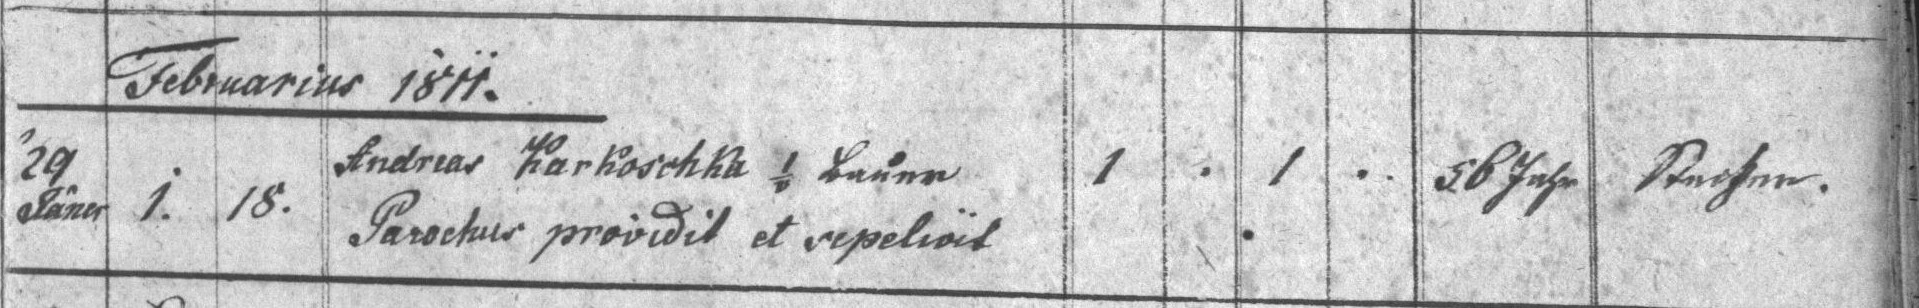 Februarius 1811.
29 Andreas Karkoschka Bauer 1 . 1 . . 56 Jahr Stechen.
Jäner 1. 18.
Parochus providit et sepelivit